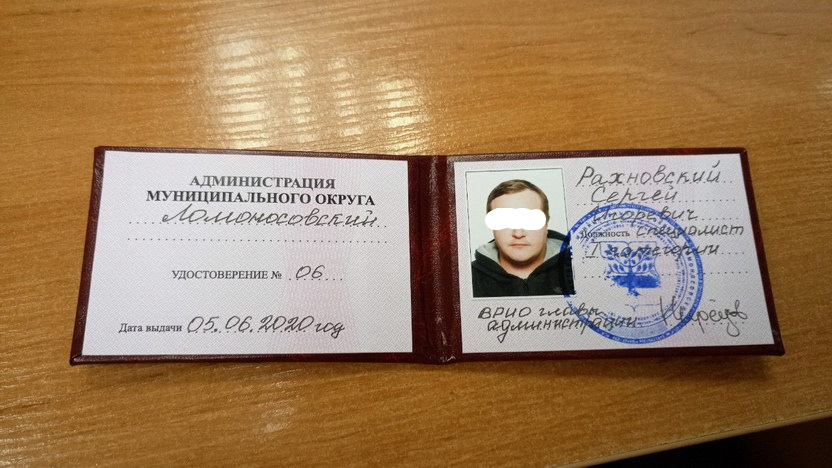 АДМИНИСТРАЦИЯ
МУНИЦИПАЛЬНОГО ОКРУГА
Ломоносовский
УДОСТОВЕРЕНИЕ № 06
Дата выдачи 05.06.2020 год
Рахновский
Сергей
Игоревич
Должность специалист
I категории
ВРИО главы
администрации